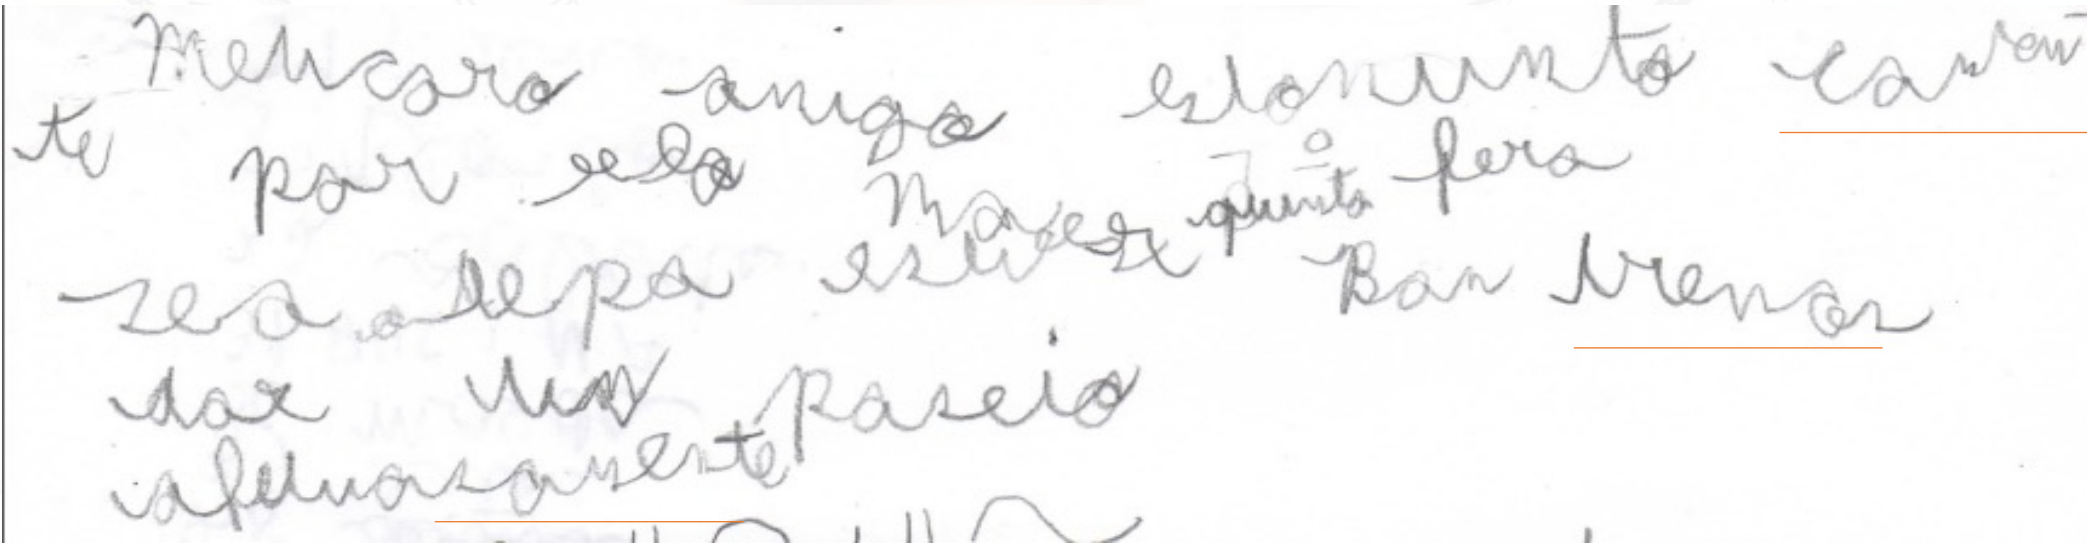 Meucaro amigo estomunto conten
te por sela Marcesx quinta fera
sea.a tepa estiver Bon vremos
dar um paseio
afetuosasamente